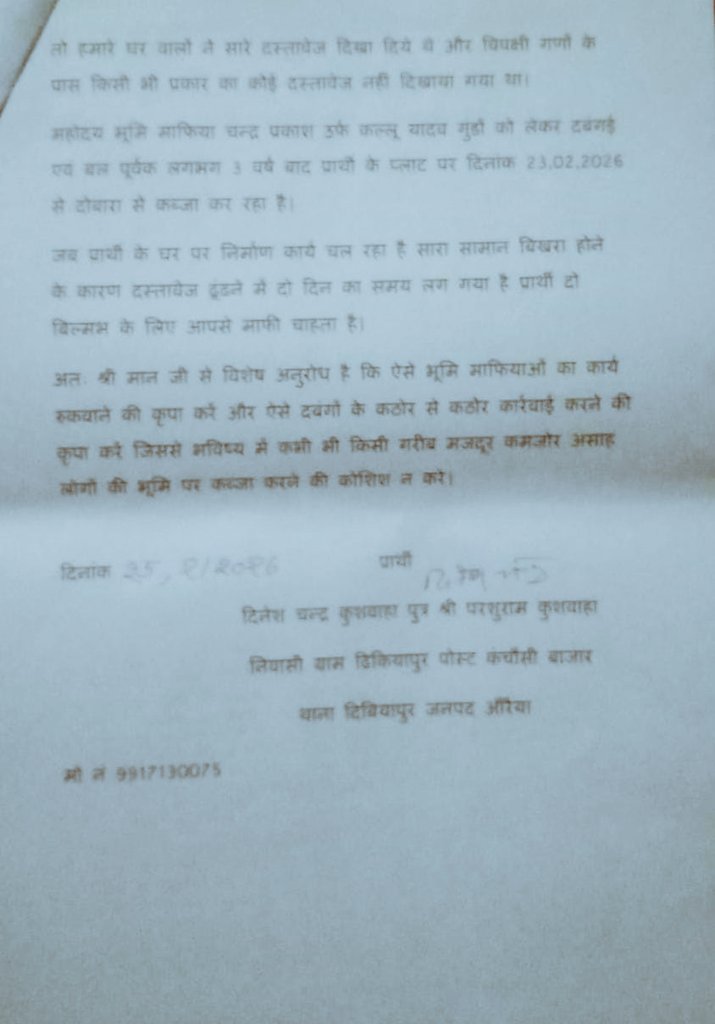 तो हमारे घर वालों ने सारे दस्तावेज दिखा दिये थे और विपक्षी गणों के
पास किसी भी प्रकार का कोई दस्तावेज नही दिखाया गया था।
महोदय भूमि माफिया चन्द्र प्रकाश उर्फ कल्लू यादव गुंडों को लेकर दबंगई
एवं बल पूर्वक लगभग 3 वर्ष बाद प्रार्थी के प्लाट पर दिनांक 23.02.2026
से दोबारा से कब्जा कर रहा है।
जब प्रार्थी के घर पर निर्माण कार्य चल रहा है सारा सामान बिखरा होने
के कारण दस्तावेज ढूंढने में दो दिन का समय लग गया है प्रार्थी दो
बिल्मभ के लिए आपसे माफी चाहता है।
अतः श्री मान जी से विशेष अनुरोध है कि ऐसे भूमि माफियाओं का कार्य
रुकवाने की कृपा करें और ऐसे दबंगों के कठोर से कठोर कार्रवाई करने की
कृपा करें जिससे भविष्य में कभी भी किसी गरीब मजदूर कमजोर असाह
लोगों की भूमि पर कब्जा करने की कोशिश न करे।
दिनांक 25,2/2026 प्रार्थी
दिनेश चन्द्र कुशवाहा पुत्र श्री परशुराम कुशवाहा
निवासी ग्राम ढिकियापुर पोस्ट कंचौसी बाजार
थाना दिबियापुर जनपद औरैया
मो नं 9917130075